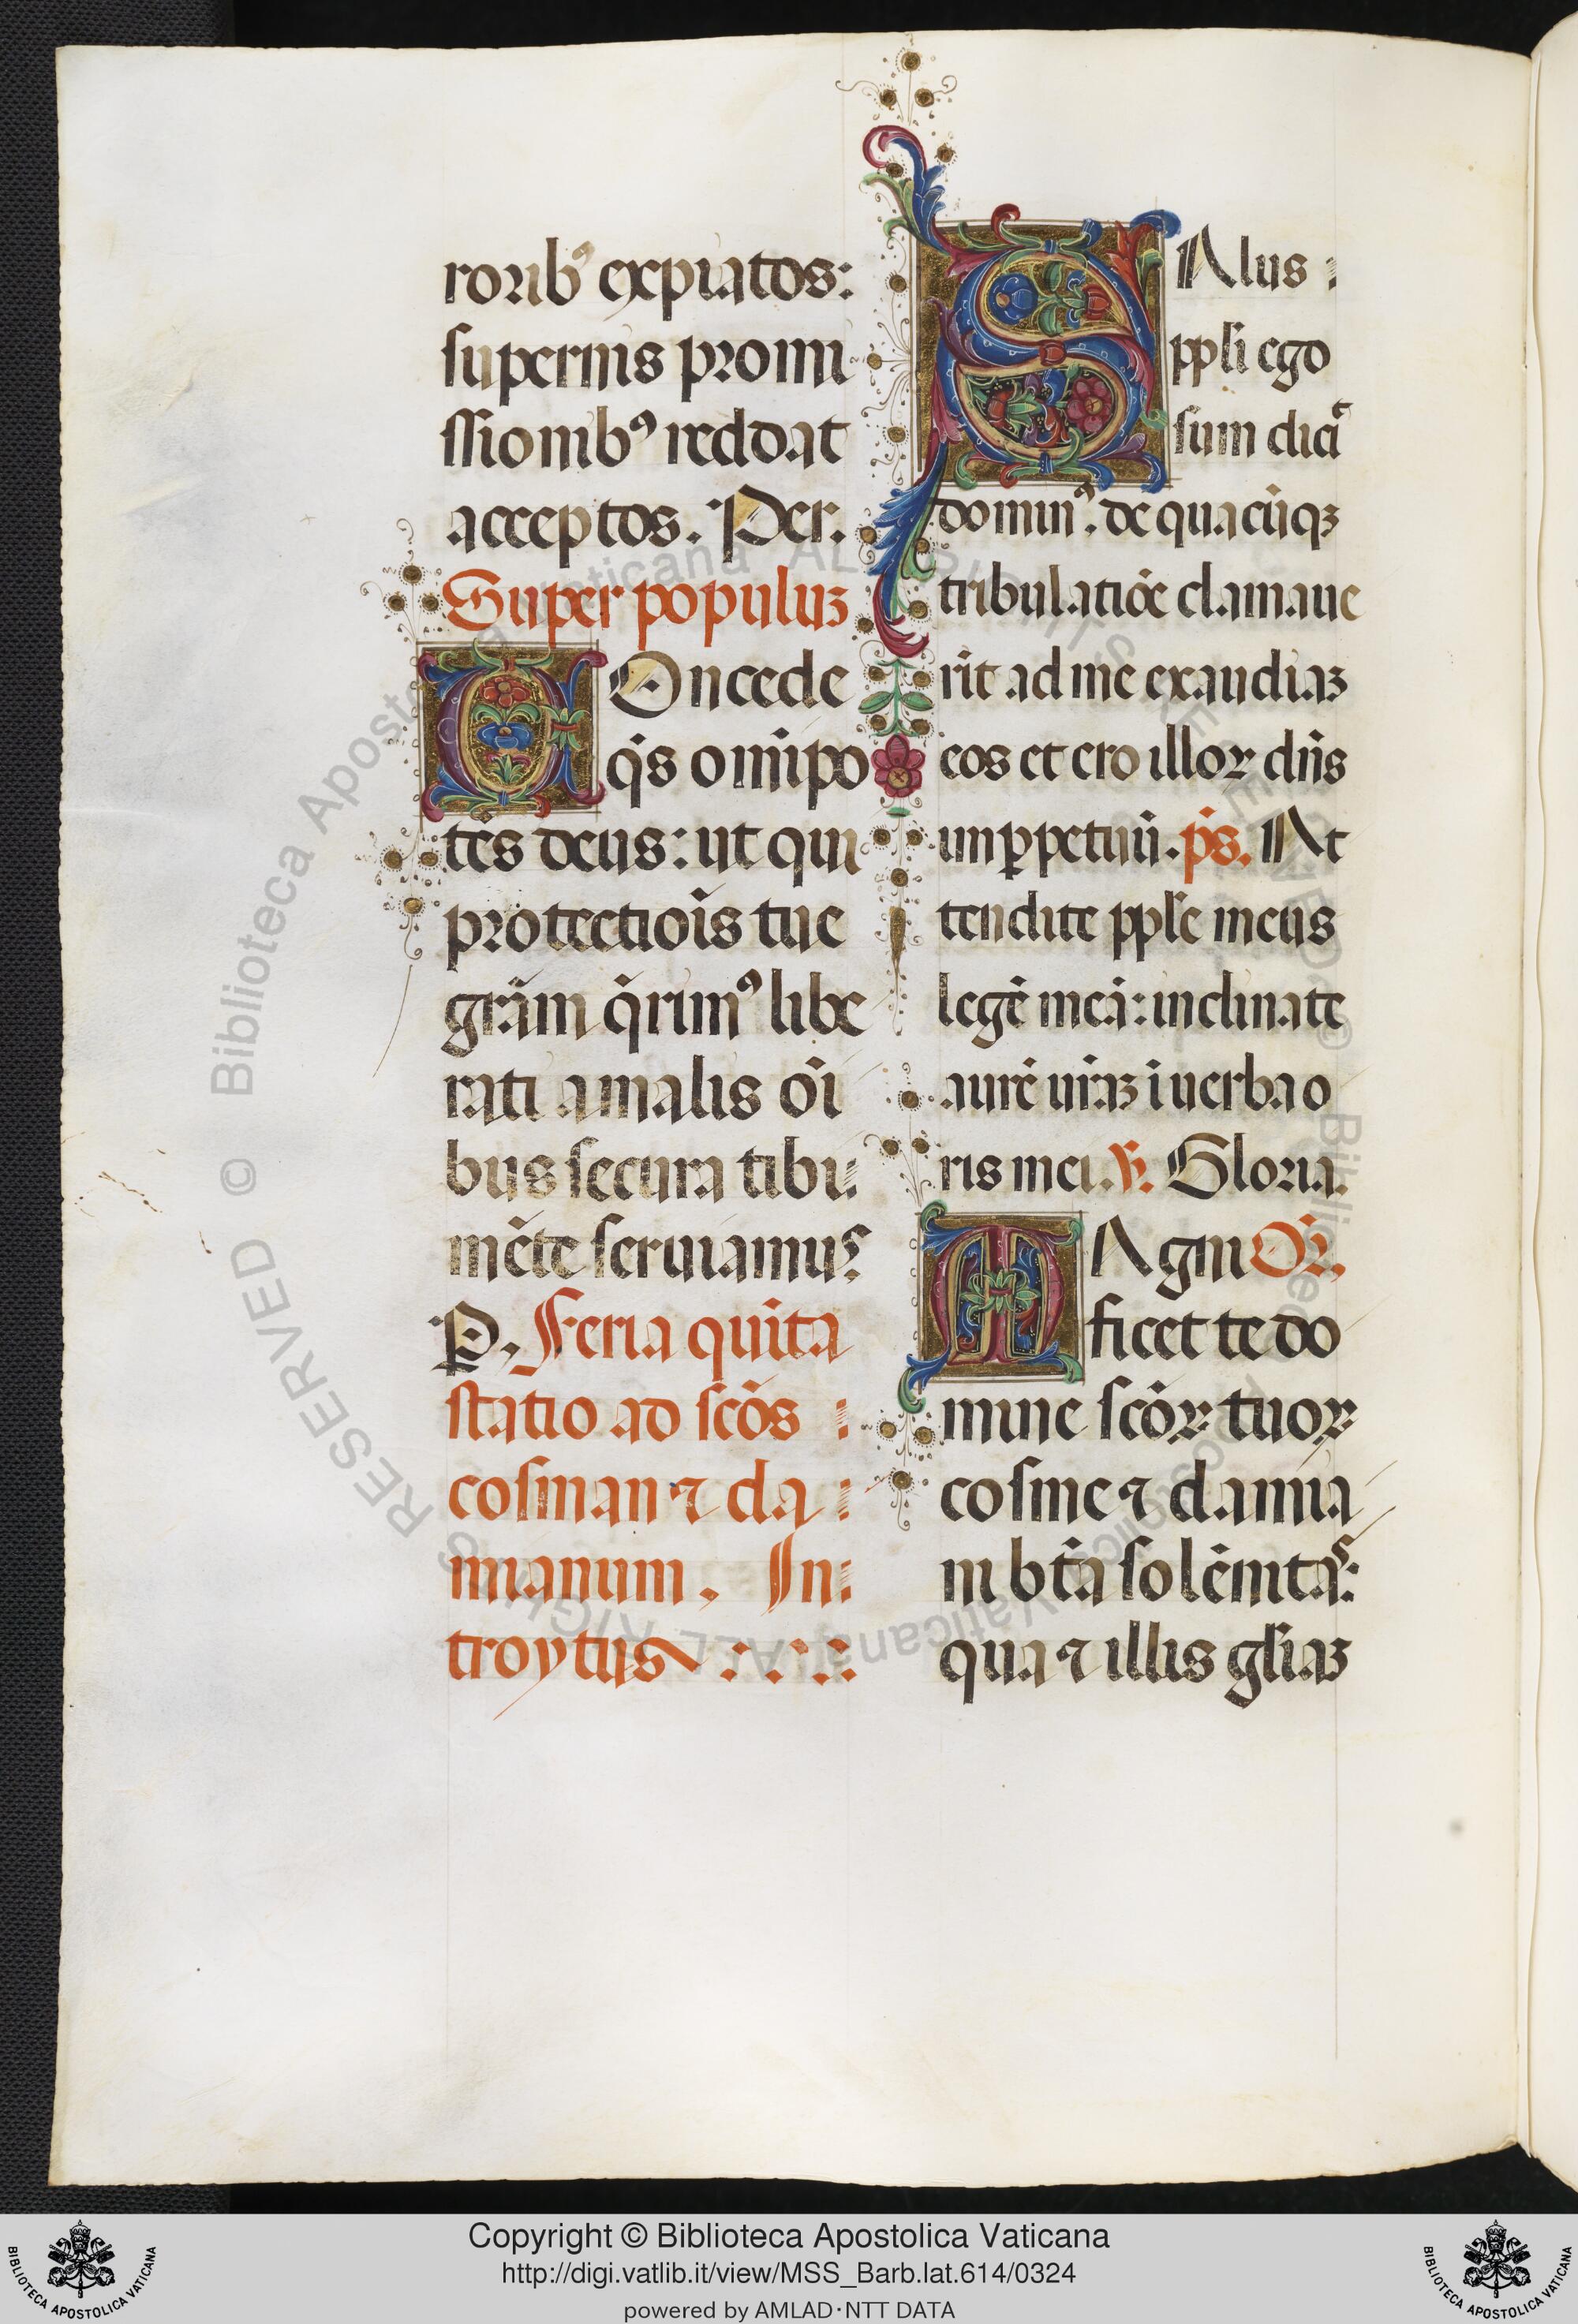 roribꝰ expiatos:
supernis promi
ssionibꝰ reddat
acceptos. Per.
Super populuz
COncede
q̄s om̄ipo
tēs deus: ut qui
protectiōis tue
grām q̄rimꝰ libe
rati a malis oī
bus secura tibi
mēte seruiamus.
P̲. Feria quīta
statio ad scōs
cosman ⁊ da
mianum. In
troytus
SAlus
ppli ego
sum dicit
dominꝰ. de quacūqꝫ
tribulatiōe clamaue
rīt ad me exaudiaꝫ
eos et ero illoꝝ dn̄s
un ꝑpetuū. p̄s. At
tendite pple meus
legē meā: inclinate
aurē urāꝫ ī uerba o
ris mei. ℣. Gloria.
MAgni Or̄.
ficet te do
mine scōꝝ tuoꝝ
cosme ⁊ damia
ni btā solēnitas:
qua ⁊ illis gliaꝫ
© Biblioteca Apostolica Vaticana ALL RIGHTS RESERVED
Copyright © Biblioteca Apostolica Vaticana
http://digi.vatlib.it/view/MSS_Barb.lat.614/0324
powered by AMLAD·NTT DATA
BIBLIOTECA APOSTOLICA VATICANA
BIBLIOTECA APOSTOLICA VATICANA